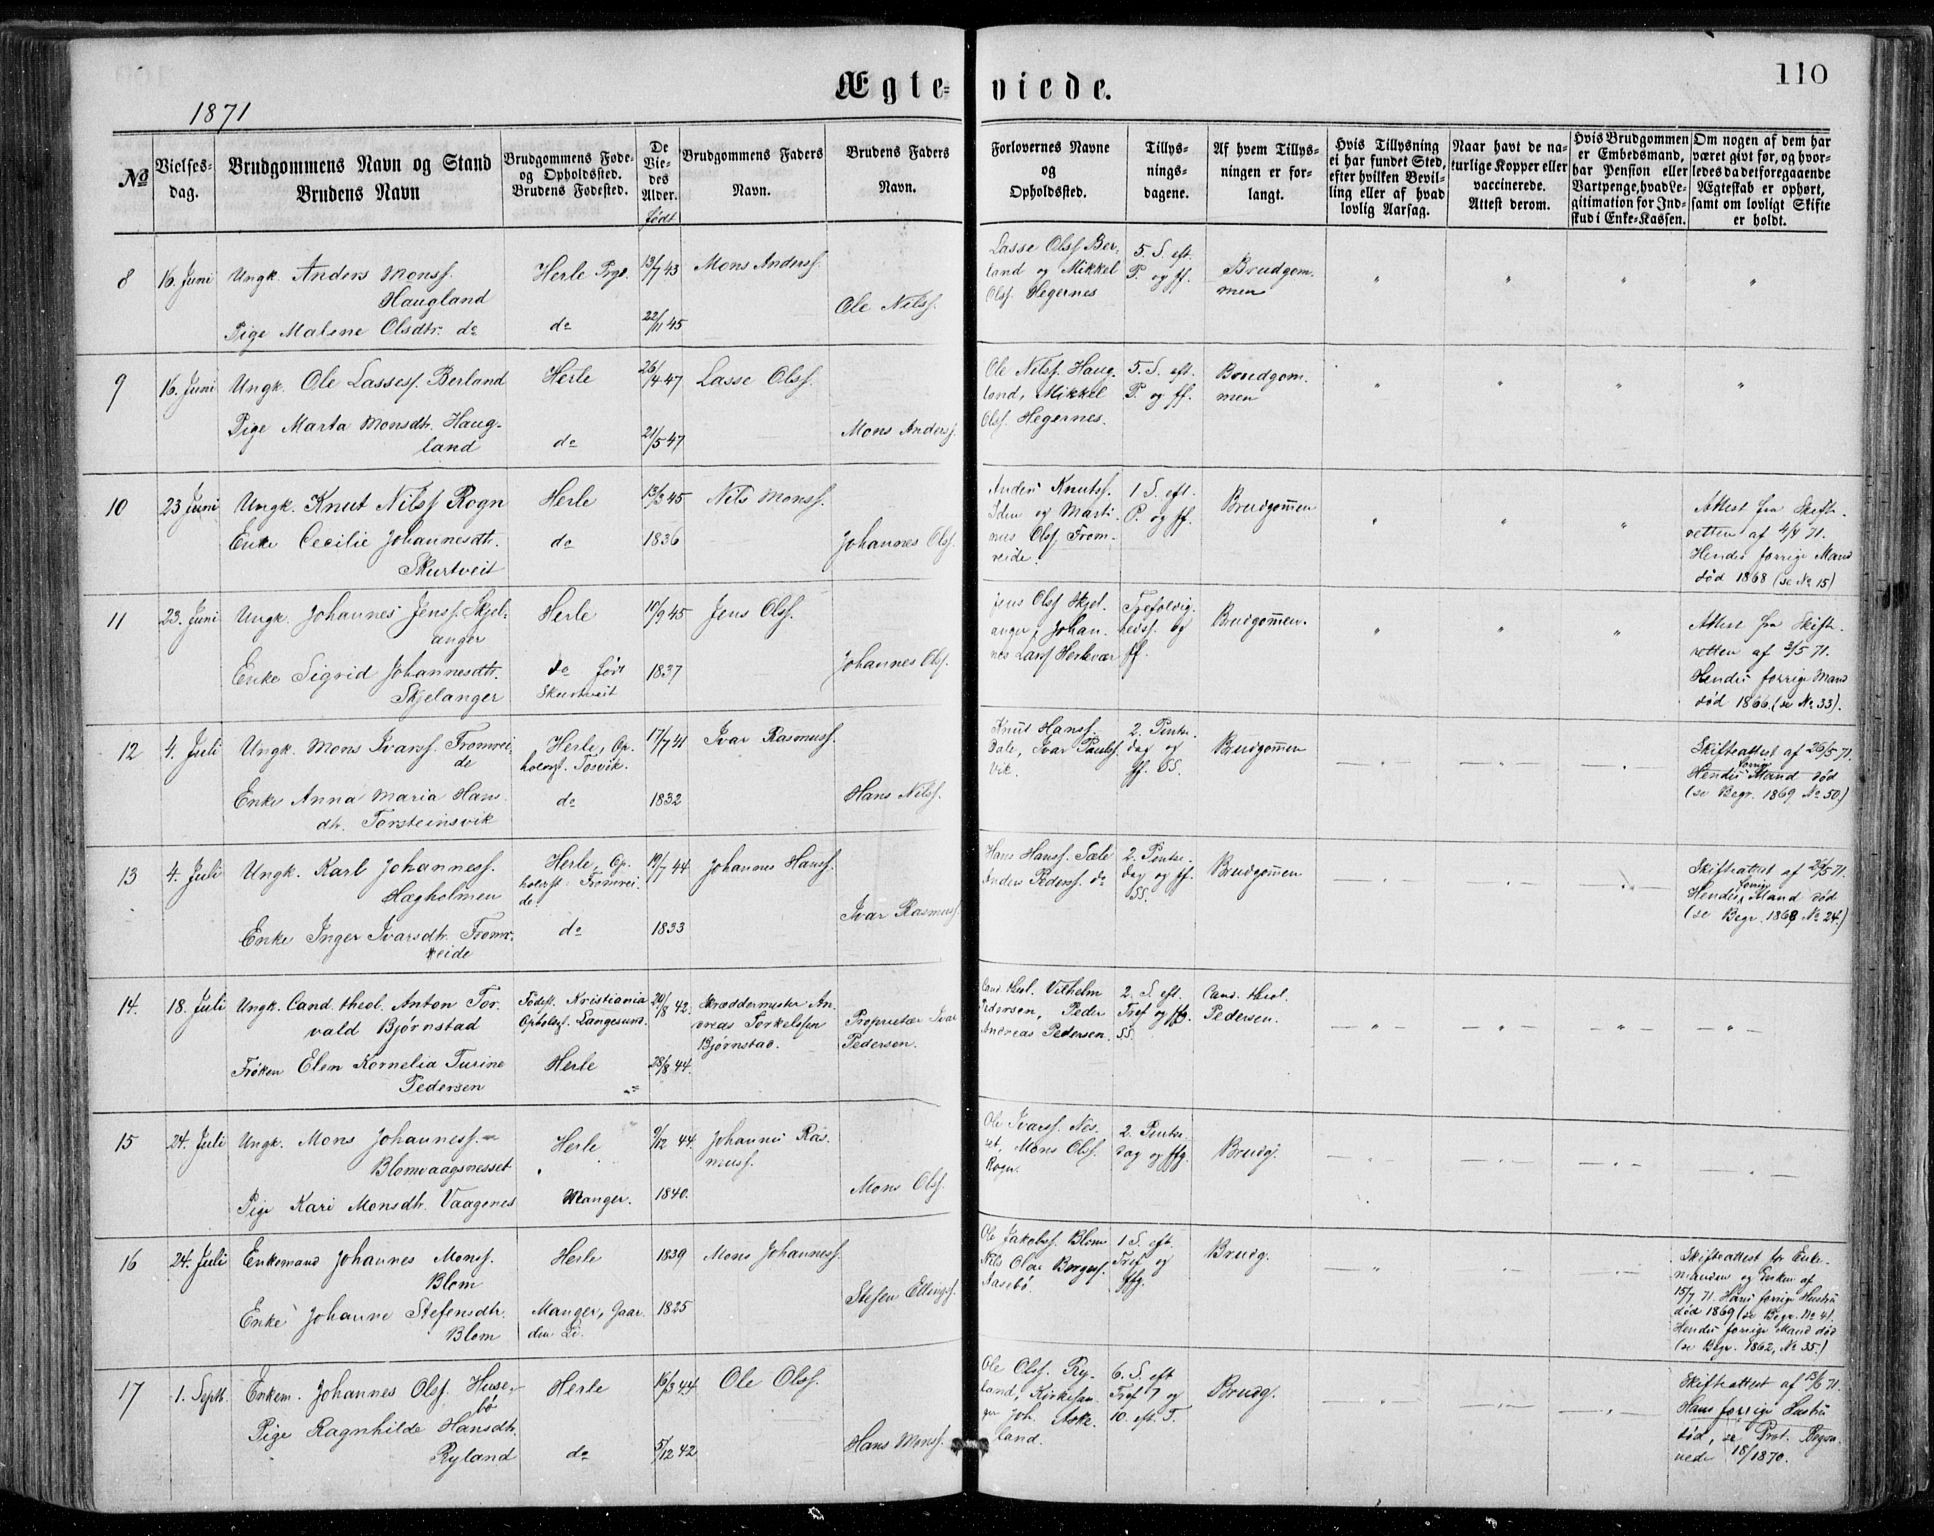 110
Ægte- viede.
1871
No
Vielses-
dag.
Brudgommens Navn og Stand
Brudens Navn
Brudgommens Føde-
og Opholdssted.
Brudens Fødested.
De
Vie-
des
Alder.
født
Brudgommens Faders
Navn.
Brudens Faders
Navn.
Forlovernes Navne
og
Opholdssted.
Tillys-
nings-
dagene.
Af hvem Tillys-
ningen er for-
langt.
Hvis Tillysning
ei har fundet Sted,
efter hvilken Bevil-
ling eller af hvad
lovlig Aarsag.
Naar havt de na-
turlige Kopper eller
vaccinerede.
Attest derom.
Hvis Brudgommen
er Embedsmand,
har Pension eller
Vartpenge, hvad Le-
gitimation for Ind-
skud i Enke-Kassen.
Om nogen af dem har
været givt før, og hvor-
ledes da det foregaaende
Ægteskab er ophørt,
samt om lovligt Skifte
er holdt.
8
16. Juni
Ungk. Anders Monsf.
Haugland
Pige Malene Olsdtr. do
Herle Prgl.
do
13/7 43
22/11 45
Mons Andersf.
Ole Nilsf.
Lasse Olsf Ber-
land og Mikkel
Olsf. Hegernes
5. S. eft.
P. og ff.
Brudgom-
men
" " " "
9
16. Juni
Ungk. Ole Lassesf. Berland
Pige Marta Monsdtr. Haug-
land
Herle
do
26/4 47
21/5 47
Lasse Olsf.
Mons Andersf.
Ole Nilsf. Haug-
land, Mikkel
Olsf. Hegernes.
5. S. eft.
P. og ff.
Brudgom-
men
" " " "
10
23 Juni
Ungk. Knut Nilsf Rogn
Enke Cecilie Johannesdtr.
Skurtveit
Herle
do
13/3 45
1836
Nils Monsf.
Johannes Olsf.
Anders Knutsf.
Iden og Marti-
nus Olsf From-
reide.
1 S. eft.
P. og ff.
Brudgom̅en
" " "
Attest fra Skift-
retten af 4/4 71.
Hendes forrige Mand
død 1868 (se No 15)
11
23. Juni
Ungk. Johannes Jensf. Skjel-
anger
Enke Sigrid Johannesdtr.
Skjelanger
Herle
do født
Skurtveit
10/9 45
1837
Jens Olsf.
Johannes Olsf.
Jens Olsf Skjel-
anger, Johan-
nes Larsf Herlevær
Trefoldig-
hedss. og
ff.
Brudgom̅en.
" " "
Attest fra Skift-
retten af 2/5 71.
Hendes forrige Mand
død 1866. (se No 33).
12
4. Juli
Ungk. Mons Ivarsf. Fromrei-
de
Enke Anna Maria Hans-
dtr. Torsteinsvik
Herle, Op-
holdsst. Tosvik.
do
17/7 41
1832
Ivar Rasmusf.
Hans Nilsf.
Knut Hansf.
Dale, Ivar Paulsf.
Vik.
2. Pintse-
dag og
ff. SS.
Brudgom̅en
" " "
Skifteattest af 26/5 71.
Hendes forrige Mand død
(se Begr. 1869 No 50.)
13
4. Juli
Ungk. Karl Johannesf.
Hagholmen
Enke Inger Ivarsdtr. From-
reide
Herle, Op-
holdsst. Fromrei-
de.
do
19/7 44
1833
Johannes Hansf.
Ivar Rasmusf.
Hans Hansf. Sæle
Anders Pedersf. do
2. Pintse-
dag og ff.
SS.
Brudgom̅en
" " "
Skifteattest af 26/5 71.
Hendes forrige Mand død
(se Begr. 1868 No 24.)
14.
18. Juli
Ungk. Cand. theol. Anton Tor-
vald Bjørnstad
Frøken Elen Kornelia Turine
Pedersen
Fødest. Kristiania
Opholdsst. Langesund.
Herle
20/8 42.
28/8 44.
Skræddermester An-
dreas Torkelsen
Bjørnstad.
Proprietær Ivar
Pedersen.
Cand. theol. Vilhelm
Pedersen, Peder
Andreas Pedersen.
2. S. eft.
Tref og ffg.
SS.
Cand. theol.
Pedersen.
" " " "
15
24. Juli
Ungk. Mons Johannesf.
Blomvaagsnesset
Pige Kari Monsdtr. Vaagenes
Herle
Manger.
9/12 44.
1840.
Johannes Ras-
musf.
Mons Olsf.
Ole Ivarsf. Nes-
set, Mons Olsf.
Rogn.
2. Pintse-
dag og ffg.
Brudg.
" " " "
16
24. Juli
Enkemand Johannes Monsf.
Blom
Enke Johanne Stefensdtr.
Blom
Herle
Manger, Gaar-
den Li.
1839
1825
Mons Johannesf.
Stefen Ellingsf.
Ole Jakobsf. Blom
Nils Olai Borgesf.
Aasebø.
1 S. eft.
Tref og
ffg.
Brudg.
" " "
Skifteattest for Enke-
manden og Enken af
15/7 71. Hans forrige Hustru
død 1869 (se Begr. No 41.
Hendes forrige Mand død
(se Begr. 1862, No 35.)
17
1. Septb.
Enkem. Johannes Olsf. Huse-
bø
Pige Ragnhilde Hansdtr.
Ryland
Herle
do
16/3 44
5/12 42
Ole Olsf.
Hans Monsf.
Ole Olsf. Ry-
land, Kirkesan-
ger Joh. Ask-
land.
6. S. eft
Tref 7 og
10. eft. T.
Brudg.
" " "
Skifteattest af 13/6 71.
Hans forrige Hustru
død, se Prot.
18/1870.